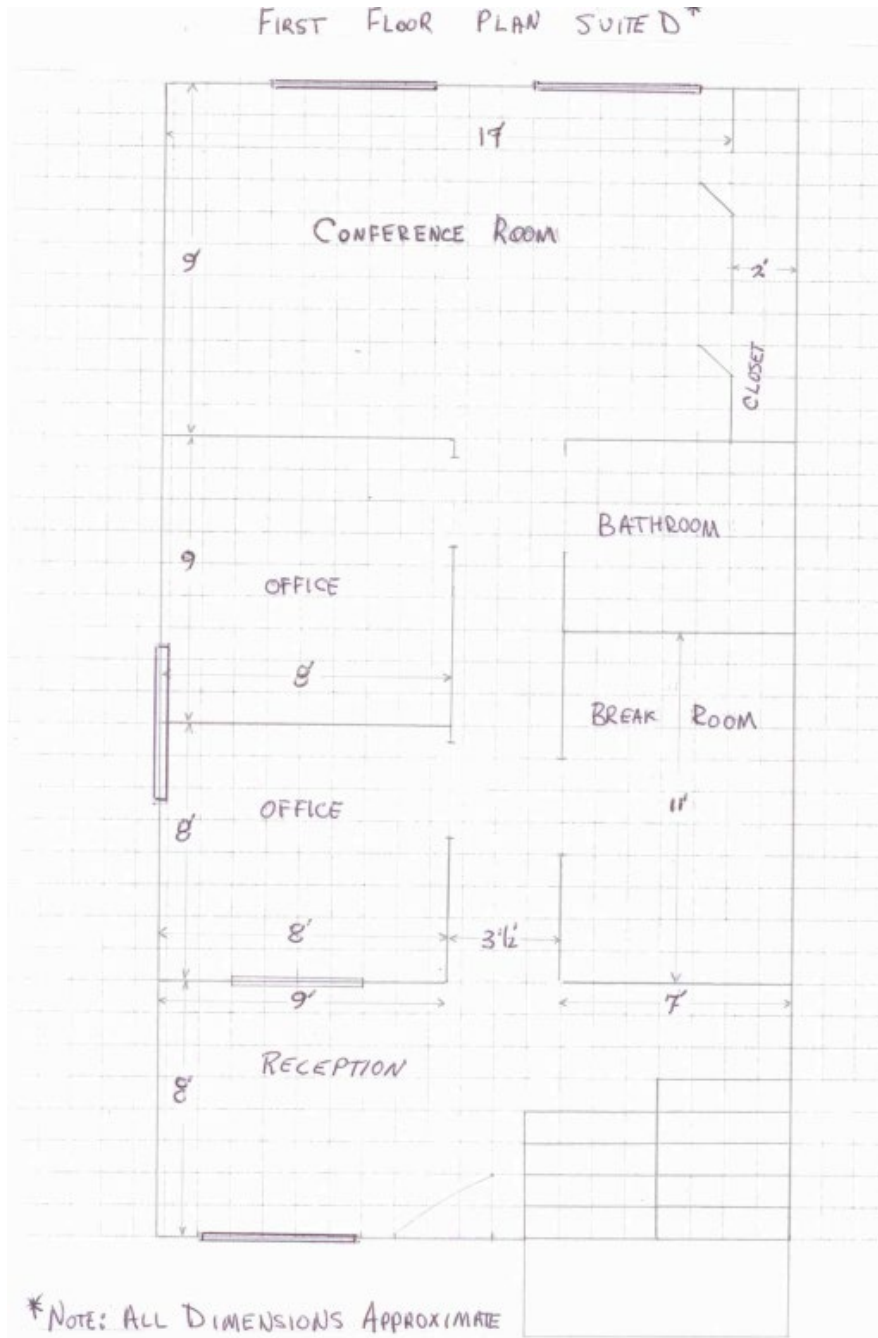 FIRST FLOOR PLAN SUITE D*
17'
CONFERENCE ROOM
9'
2'
CLOSET
BATHROOM
9
OFFICE
8'
BREAK ROOM
OFFICE
11'
8'
8'
3½'
9'
7'
RECEPTION
8'
*NOTE: ALL DIMENSIONS APPROXIMATE